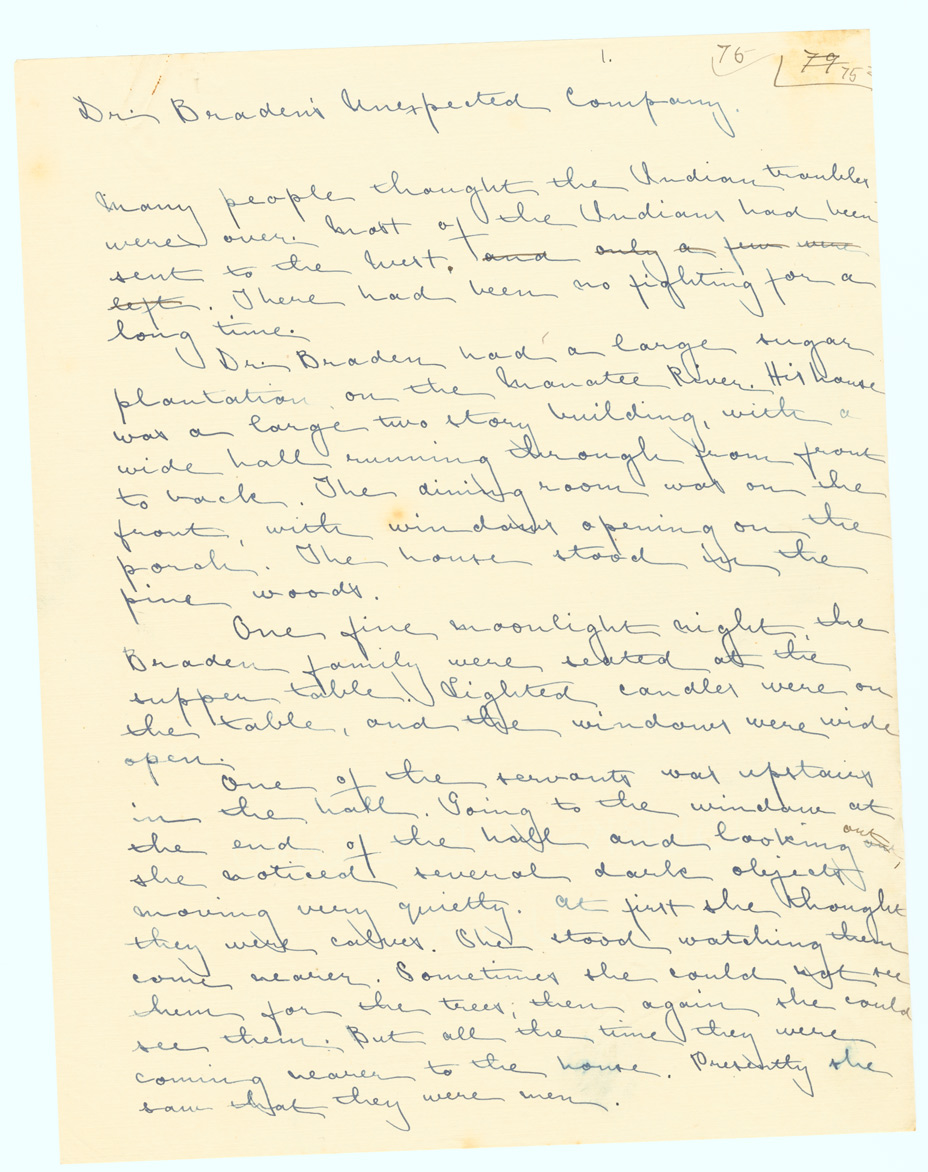 1.
75
79 75
Dr. Braden's Unexpected Company.
Many people thought the Indian troubles
were over. Most of the Indians had been
sent to the West. and only a few were
left. There had been no fighting for a
long time.
Dr. Braden had a large sugar
plantation on the Manatee River. His house
was a large two story building, with a
wide hall running through from front
to back. The dining room was on the
front, with windows opening on the
porch. The house stood in the
pine woods.
One fine moonlight night, the
Braden family were seated at the
supper table. Lighted candles were on
the table, and the windows were wide
open.
One of the servants was upstairs
in the hall. Going to the window at
the end of the hall and looking out,
she noticed several dark objects
moving very quietly. At first she thought
they were calves. She stood watching them
come nearer. Sometimes she could not see
them for the trees; then again she could
see them. But all the time they were
coming nearer to the house. Presently she
saw that they were men.